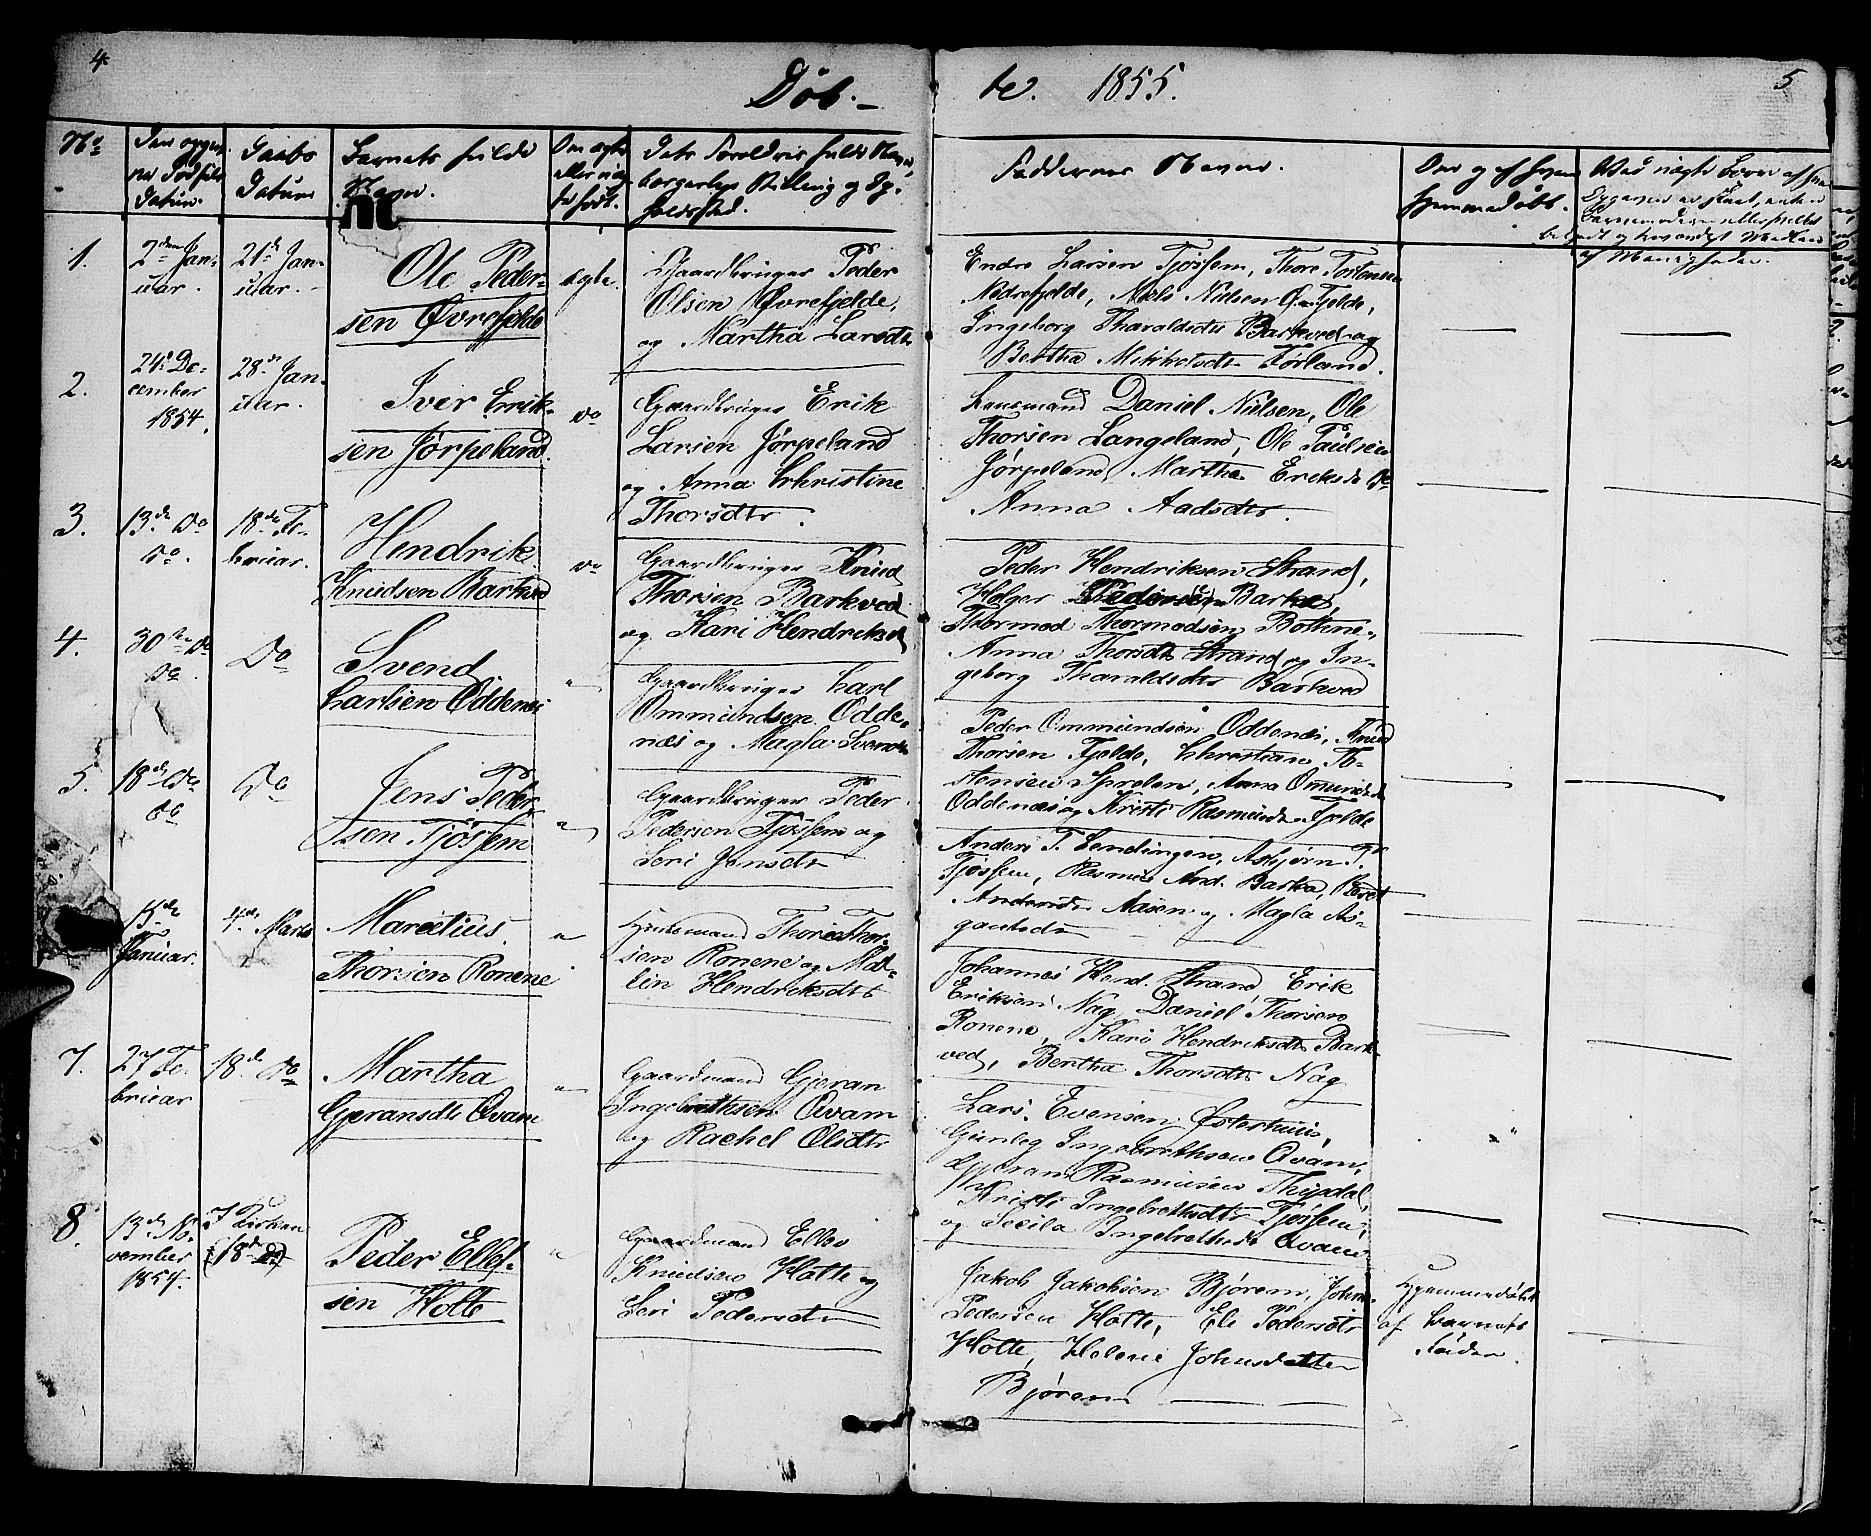 4
Døb-
te. 1855.
5
No
Den opgiv-
ne Fødsels
Datum.
Daabs
Datum
Barnets fulde
Navn.
Om ægte
eller uæg-
te født.
Dets Forældres fulde Navne,
borgerlige Stilling og Op-
holdssted.
Faddernes Navne.
Om og af hvem
hjemmedøbt.
1.
2den Jan-
uar.
21de Jan-
uar.
Ole Peder-
sen Øvrefjelde
ægte.
Gaardbruger Peder
Olsen Øvrefjelde,
og Martha Larsdtr
Endre Larsen Tjøssem, Thore Tostensen
Nedrefjelde, Niels Nielsen Ø. Fjelde,
Ingeborg Tharaldsdtr Barkved og
Bertha Mikkelsdtr Førland.
2.
24de De-
cember
1854.
28de Jan-
uar.
Iver Erik-
sen Jørpeland.
Do
Gaardbruger Erik
Larsen Jørpeland
og Anna Christine
Thorsdtr.
Lensmand Daniel Nielsen, Ole
Thorsen Langeland, Ole Paulsen
Jørpeland, Martha Eriksdtr Do
Anna Aadsdtr.
3.
13de Do
Do.
18de Fe-
bruar.
Hendrik
Knudsen Barkved
Do
Gaardbruger Knud
Thorsen Barkved
og Kari Hendriksd
Peder Hendriksen Strand,
Holger Pedersen Barkved,
Thormod Thormodsen Bottene,
Anna Thorsdtr Strand og In-
geborg Tharaldsdtr Barkved
4.
30te Do
Do.
Do
Svend
Carlsen Oddenes
"
Gaardbruger Carl
Ommundsen Odde-
næs og Magla Svends
Peder Ommundsen Oddenes, Knud
Thorsen Fjelde, Christian To-
stensen, Anna Omundsd
Oddenæs og Kirsti Rasmusdtr Fjelde
5.
18de Do
Do
Do
Jens Peder-
sen Tjøssem
"
Gaardbruger Peder
Pedersen Tjøssem og
Seri Jensdtr
Anders T. Lendingen, Asbjørn P.
Tjøssem, Rasmus And. Barka, Beret
Andersdtr Aasen og Magla As-
gautsdtr
15de
Januar.
4de Marts
Marcelius
Thorsen Ronene
"
Huusmand Thore Thor-
sen Ronene og Ma-
lin Hendriksdtr
Johannes Hend. Strand, Erik
Eriksen Nag, Daniel Thorsen
Ronene, Kari Hendriksdtr Bark-
ved, Bertha Thorsdtr Nag
7.
27 Fe-
bruar
18de Do
Martha
Gjeransdtr Qvam
"
Gaardmand Gjeran
Ingebrethsen Qvam
og Rachel Olsdtr
Lars Evensen Østerhuus,
Gunleg Ingebrethsen Qvam,
Gjeran Rasmusen Thysdal,
Kristi Ingebrethsdtr Tjøssem,
og Secila Ingebrethsdtr Qvam
"
8.
13de No-
vember
1854.
I Kirken
(18de Do)
Peder Ellef-
sen Holte
"
Gaardmand Ellev
Knudsen Holte og
Seri Pedersdtr
Jakob Jakobsen Bjørem, John
Pedersen Holte, Eli Pedersdtr
Holte, Helene Johnsdatter
Bjørem
Hjemmedøbt
af Barnets
Fader.